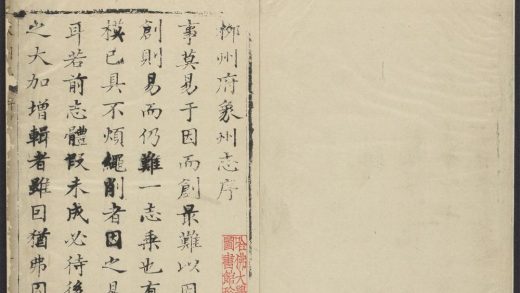 柳州府象州志序
事莫易于因而創最難以因
創則易而仍難一志乗也有
模已具不煩繩削者因之是
耳若前志體段未成必待後
之大加增輯者雖曰猶弗因
哈佛大學
圖書館珍